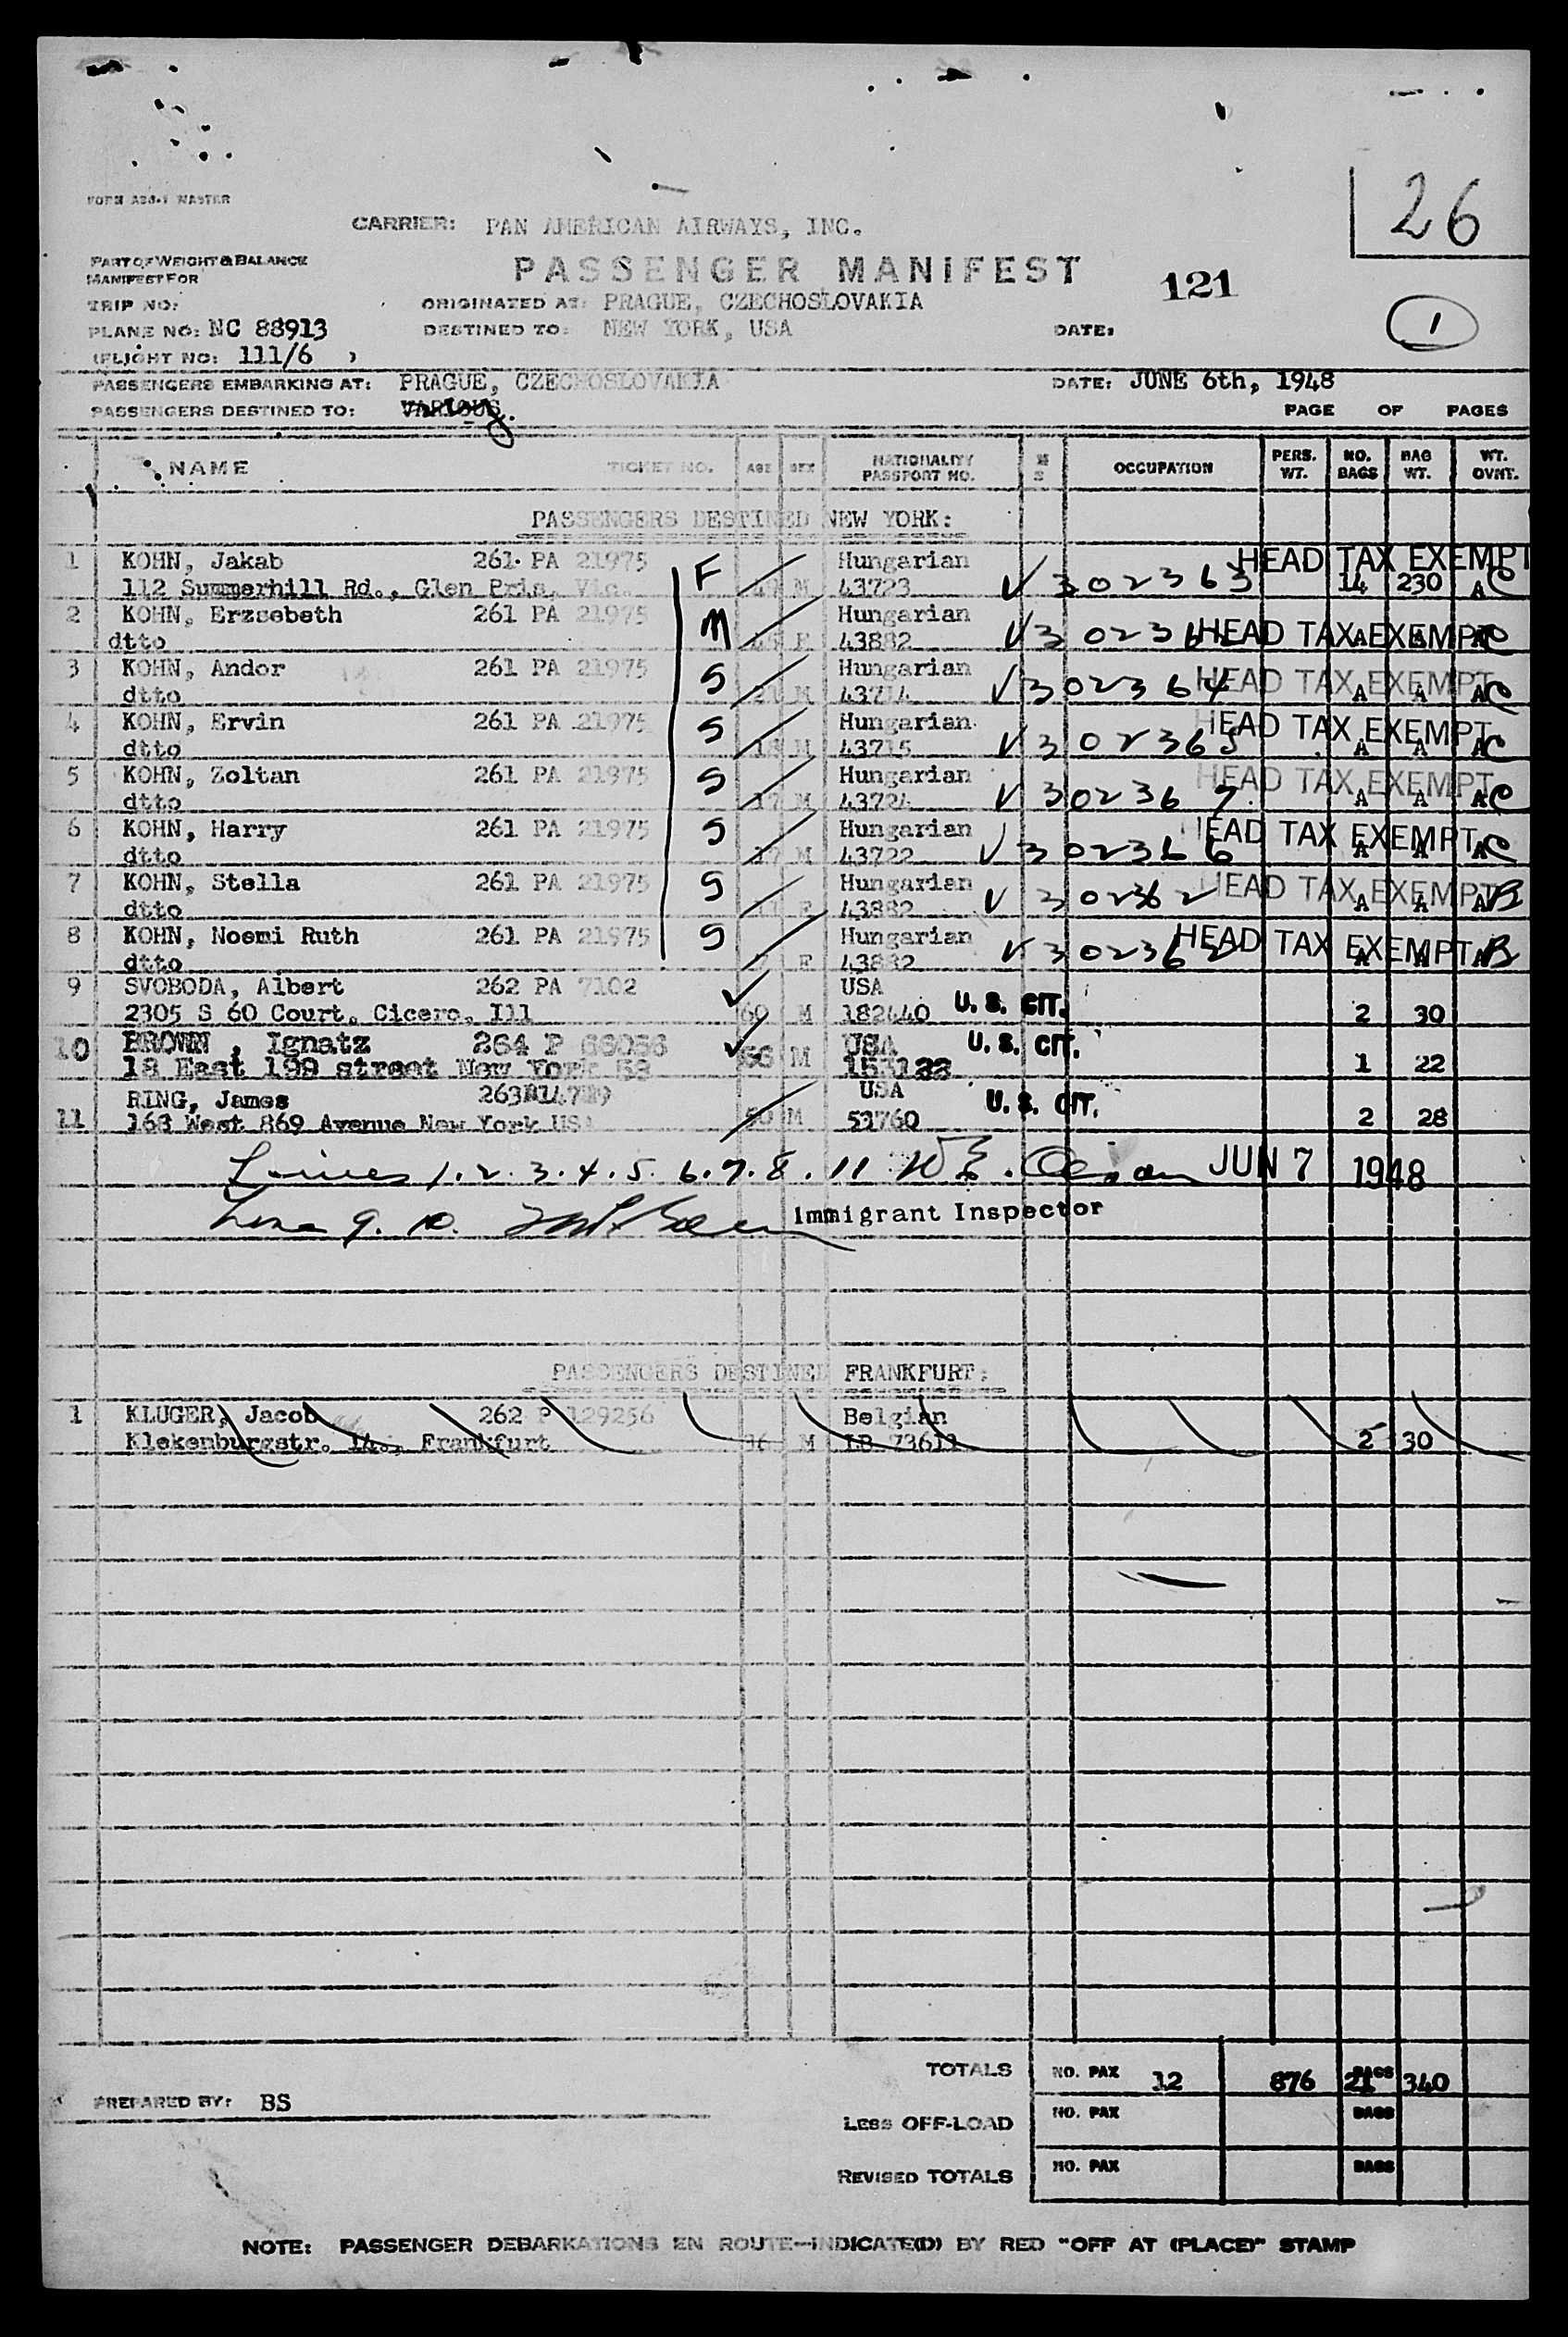 FORM
26
CARRIER: PAN AMERICAN AIRWAYS, INC.
PART OF WEIGHT & BALANCE
MANIFEST FOR
PASSENGER MANIFEST
121
TRIP NO:
ORIGINATED AT: PRAGUE, CZECHOSLOVAKIA
PLANE NO: NC 88913
DESTINED TO: NEW YORK, USA
DATE:
1
(FLIGHT NO: 111/6 )
PASSENGERS EMBARKING AT: PRAGUE, CZECHOSLOVAKIA
DATE: JUNE 6th, 1948
PASSENGERS DESTINED TO: VARIOUS.
PAGE OF PAGES
NAME TICKET NO. AGE SEX NATIONALITY PASSPORT NO. M S OCCUPATION PERS. WT. NO. BAGS BAG WT. WT. OVNT.
PASSENGERS DESTINED NEW YORK:
1 KOHN, Jakab 261 PA 21975 F Hungarian HEAD TAX EXEMPT
112 Summerhill Rd., Glen Pris, Vic. M 43723 V 302363 14 230 A C
2 KOHN, Erzsebeth 261 PA 21975 M Hungarian
dtto F 43882 V HEAD TAX EXEMPT A A A C
3 KOHN, Andor 261 PA 21975 S Hungarian
dtto 21 M 43714 V 302364 HEAD TAX EXEMPT A A A C
4 KOHN, Ervin 261 PA 21975 S Hungarian
dtto 18 M 43715 V 302365 HEAD TAX EXEMPT A A A C
5 KOHN, Zoltan 261 PA 21975 S Hungarian
dtto 17 M 43724 V 302367 HEAD TAX EXEMPT A A A C
6 KOHN, Harry 261 PA 21975 S Hungarian
dtto M 43722 V 302366 HEAD TAX EXEMPT A A A C
7 KOHN, Stella 261 PA 21975 S Hungarian
dtto F 43882 V 302362 HEAD TAX EXEMPT A A A B
8 KOHN, Noemi Ruth 261 PA 21975 S Hungarian
dtto F 43882 V 302362 HEAD TAX EXEMPT A A A B
9 SVOBODA, Albert 262 PA 7102 USA
2305 S 60 Court, Cicero, Ill 60 M 182440 U. S. CIT. 2 30
10 BROWN , Ignatz 264 P USA U. S. CIT.
18 East 199 street New York 58 M 1 22
RING, James USA U. S. CIT.
11 163 West 869 Avenue New York USA 50 M 51760 2 28
Lines 1.2.3.4.5.6.7.8.11 JUN 7 1948
Line 9. 10. Immigrant Inspector
PASSENGERS DESTINED FRANKFURT:
1 KLUGER, Jacob 262 P 129256 Belgian
Klekenburgstr. 14., Frankfurt M 2 30
TOTALS NO. PAX 12 876 BAGS 21 340
PREPARED BY: BS
LESS OFF-LOAD NO. PAX BAGS
REVISED TOTALS NO. PAX BAGS
NOTE: PASSENGER DEBARKATIONS EN ROUTE—INDICATE(D) BY RED "OFF AT (PLACE)" STAMP